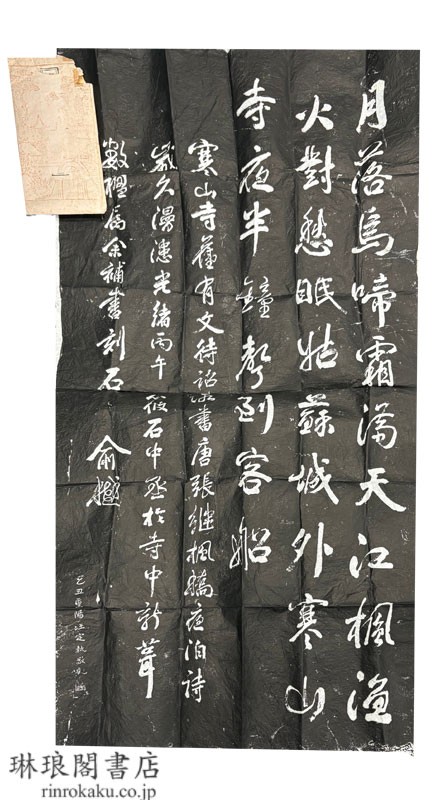 月落烏啼霜滿天江楓漁
火對愁眠姑蘇城外寒山
寺夜半鐘聲到客船
寒山寺舊有文待詔所書唐張繼楓橋夜泊詩
歲久漫漶光緒丙午筱石中丞於寺中新葺
數楹屬余補書刻石 俞樾
琳琅閣書店
rinrokaku.co.jp